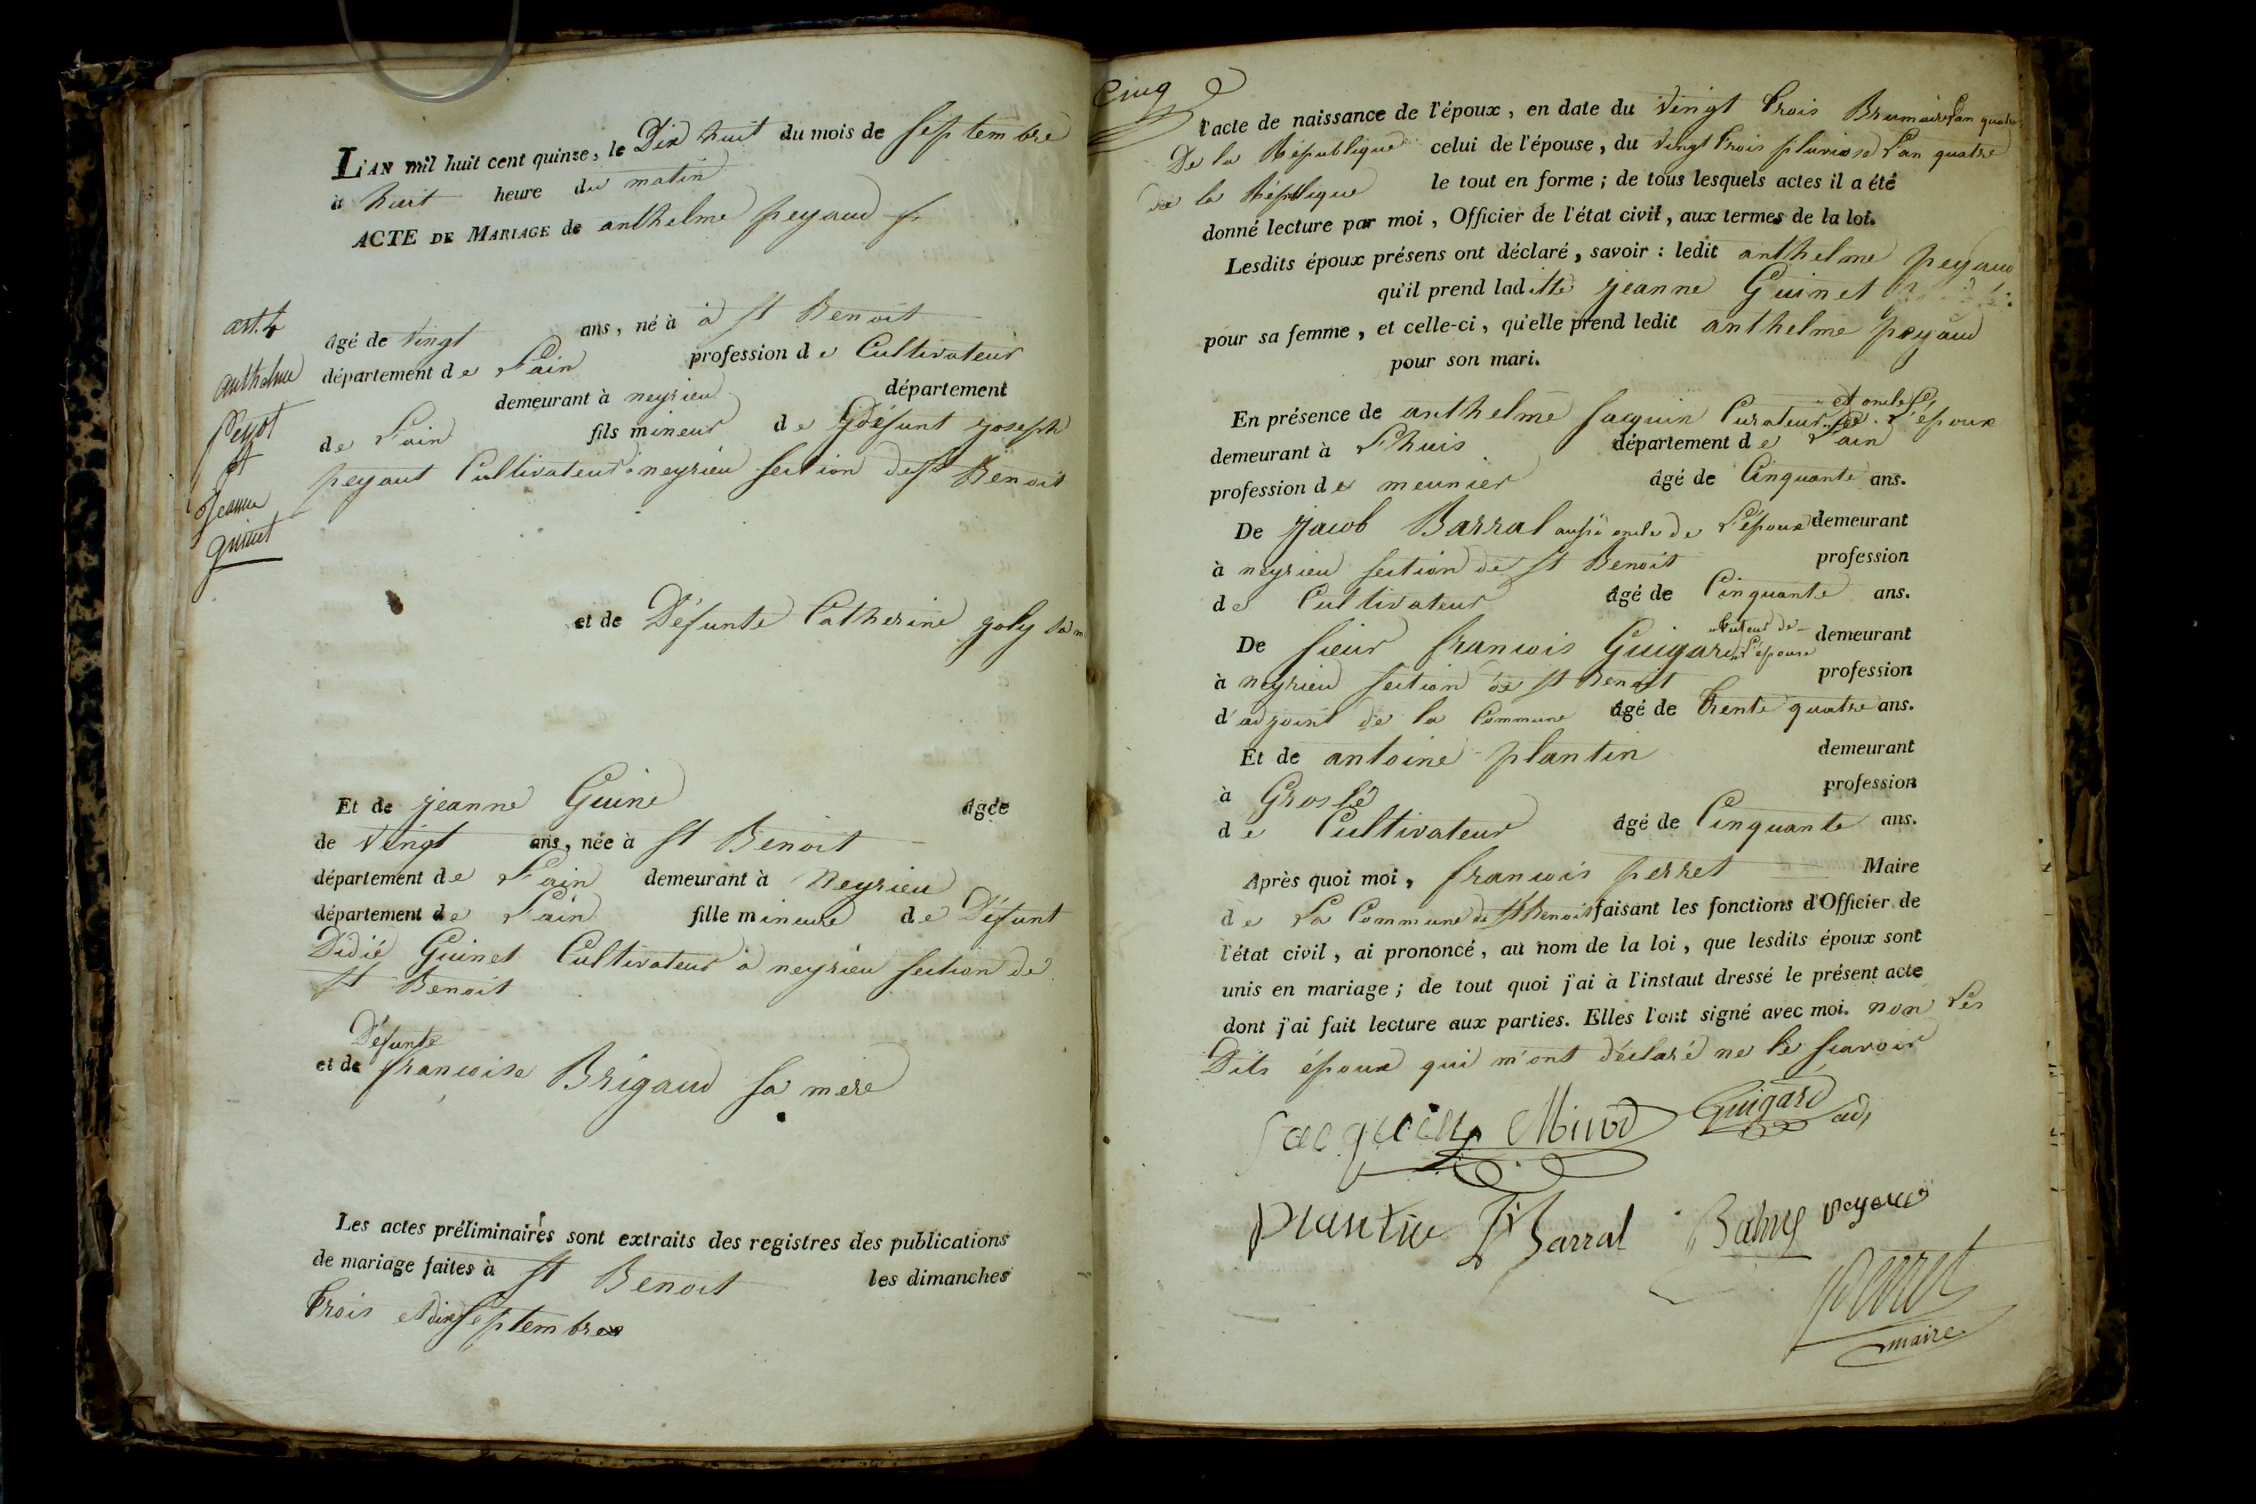 L'AN mil huit cent quinze, le Dix huit du mois de septembre
à huit heure du matin
ACTE DE MARIAGE de anthelme peyaud
art. 4
anthelme
Peyot
et
Jeanne
guinet
âgé de vingt ans, né à à st Benoit
département de L'ain profession de Cultivateur
demeurant à neyrieu département
de L'ain fils mineur de Défunt joseph
peyaut Cultivateur à neyrieu section de st Benoit
et de Défunte Catherine goly sa m
Et de jeanne Guine âgée
de vingt ans, née à st Benoit
département de L'ain demeurant à Neyrieu
département de L'ain fille mineure de Défunt
Didié Guinet Cultivateur à neyrieu section de
st Benoit
Défunte
et de francoise Brigaud sa mere
Les actes préliminaires sont extraits des registres des publications
de mariage faites à st Benoit les dimanches
trois et dix septembre
Cinq
l'acte de naissance de l'époux, en date du vingt trois Brumaire L'an quatre
De la République celui de l'épouse, du vingt trois pluviose L'an quatre
de la République le tout en forme; de tous lesquels actes il a été
donné lecture par moi, Officier de l'état civil, aux termes de la loi.
Lesdits époux présens ont déclaré, savoir: ledit anthelme peyaud
qu'il prend laditte jeanne Guinet
pour sa femme, et celle-ci, qu'elle prend ledit anthelme peyaud
pour son mari.
En présence de anthelme jacquin Curateur et oncle de L'époux
demeurant à L'huis département de L'ain
profession de meunier âgé de Cinquante ans.
De jacob Barral aussi oncle de L'époux demeurant
à neyrieu section de st Benoit profession
de Cultivateur âgé de Cinquante ans.
De sieur francois Guigard tuteur de L'épouse demeurant
à neyrieu section de st Benoit profession
d'adjoint de la Commune âgé de trente quatre ans.
Et de antoine plantin demeurant
à Groslé profession
de Cultivateur âgé de Cinquante ans.
Après quoi moi, francois perret Maire
de La Commune de st Benoit faisant les fonctions d'Officier de
l'état civil, ai prononcé, au nom de la loi, que lesdits époux sont
unis en mariage; de tout quoi j'ai à l'instaut dressé le présent acte
dont j'ai fait lecture aux parties. Elles l'ont signé avec moi. non Les
Dits époux qui m'ont déclaré ne le scavoir
jacquin Guigard adj
plantin Barral peyaud
perret
maire